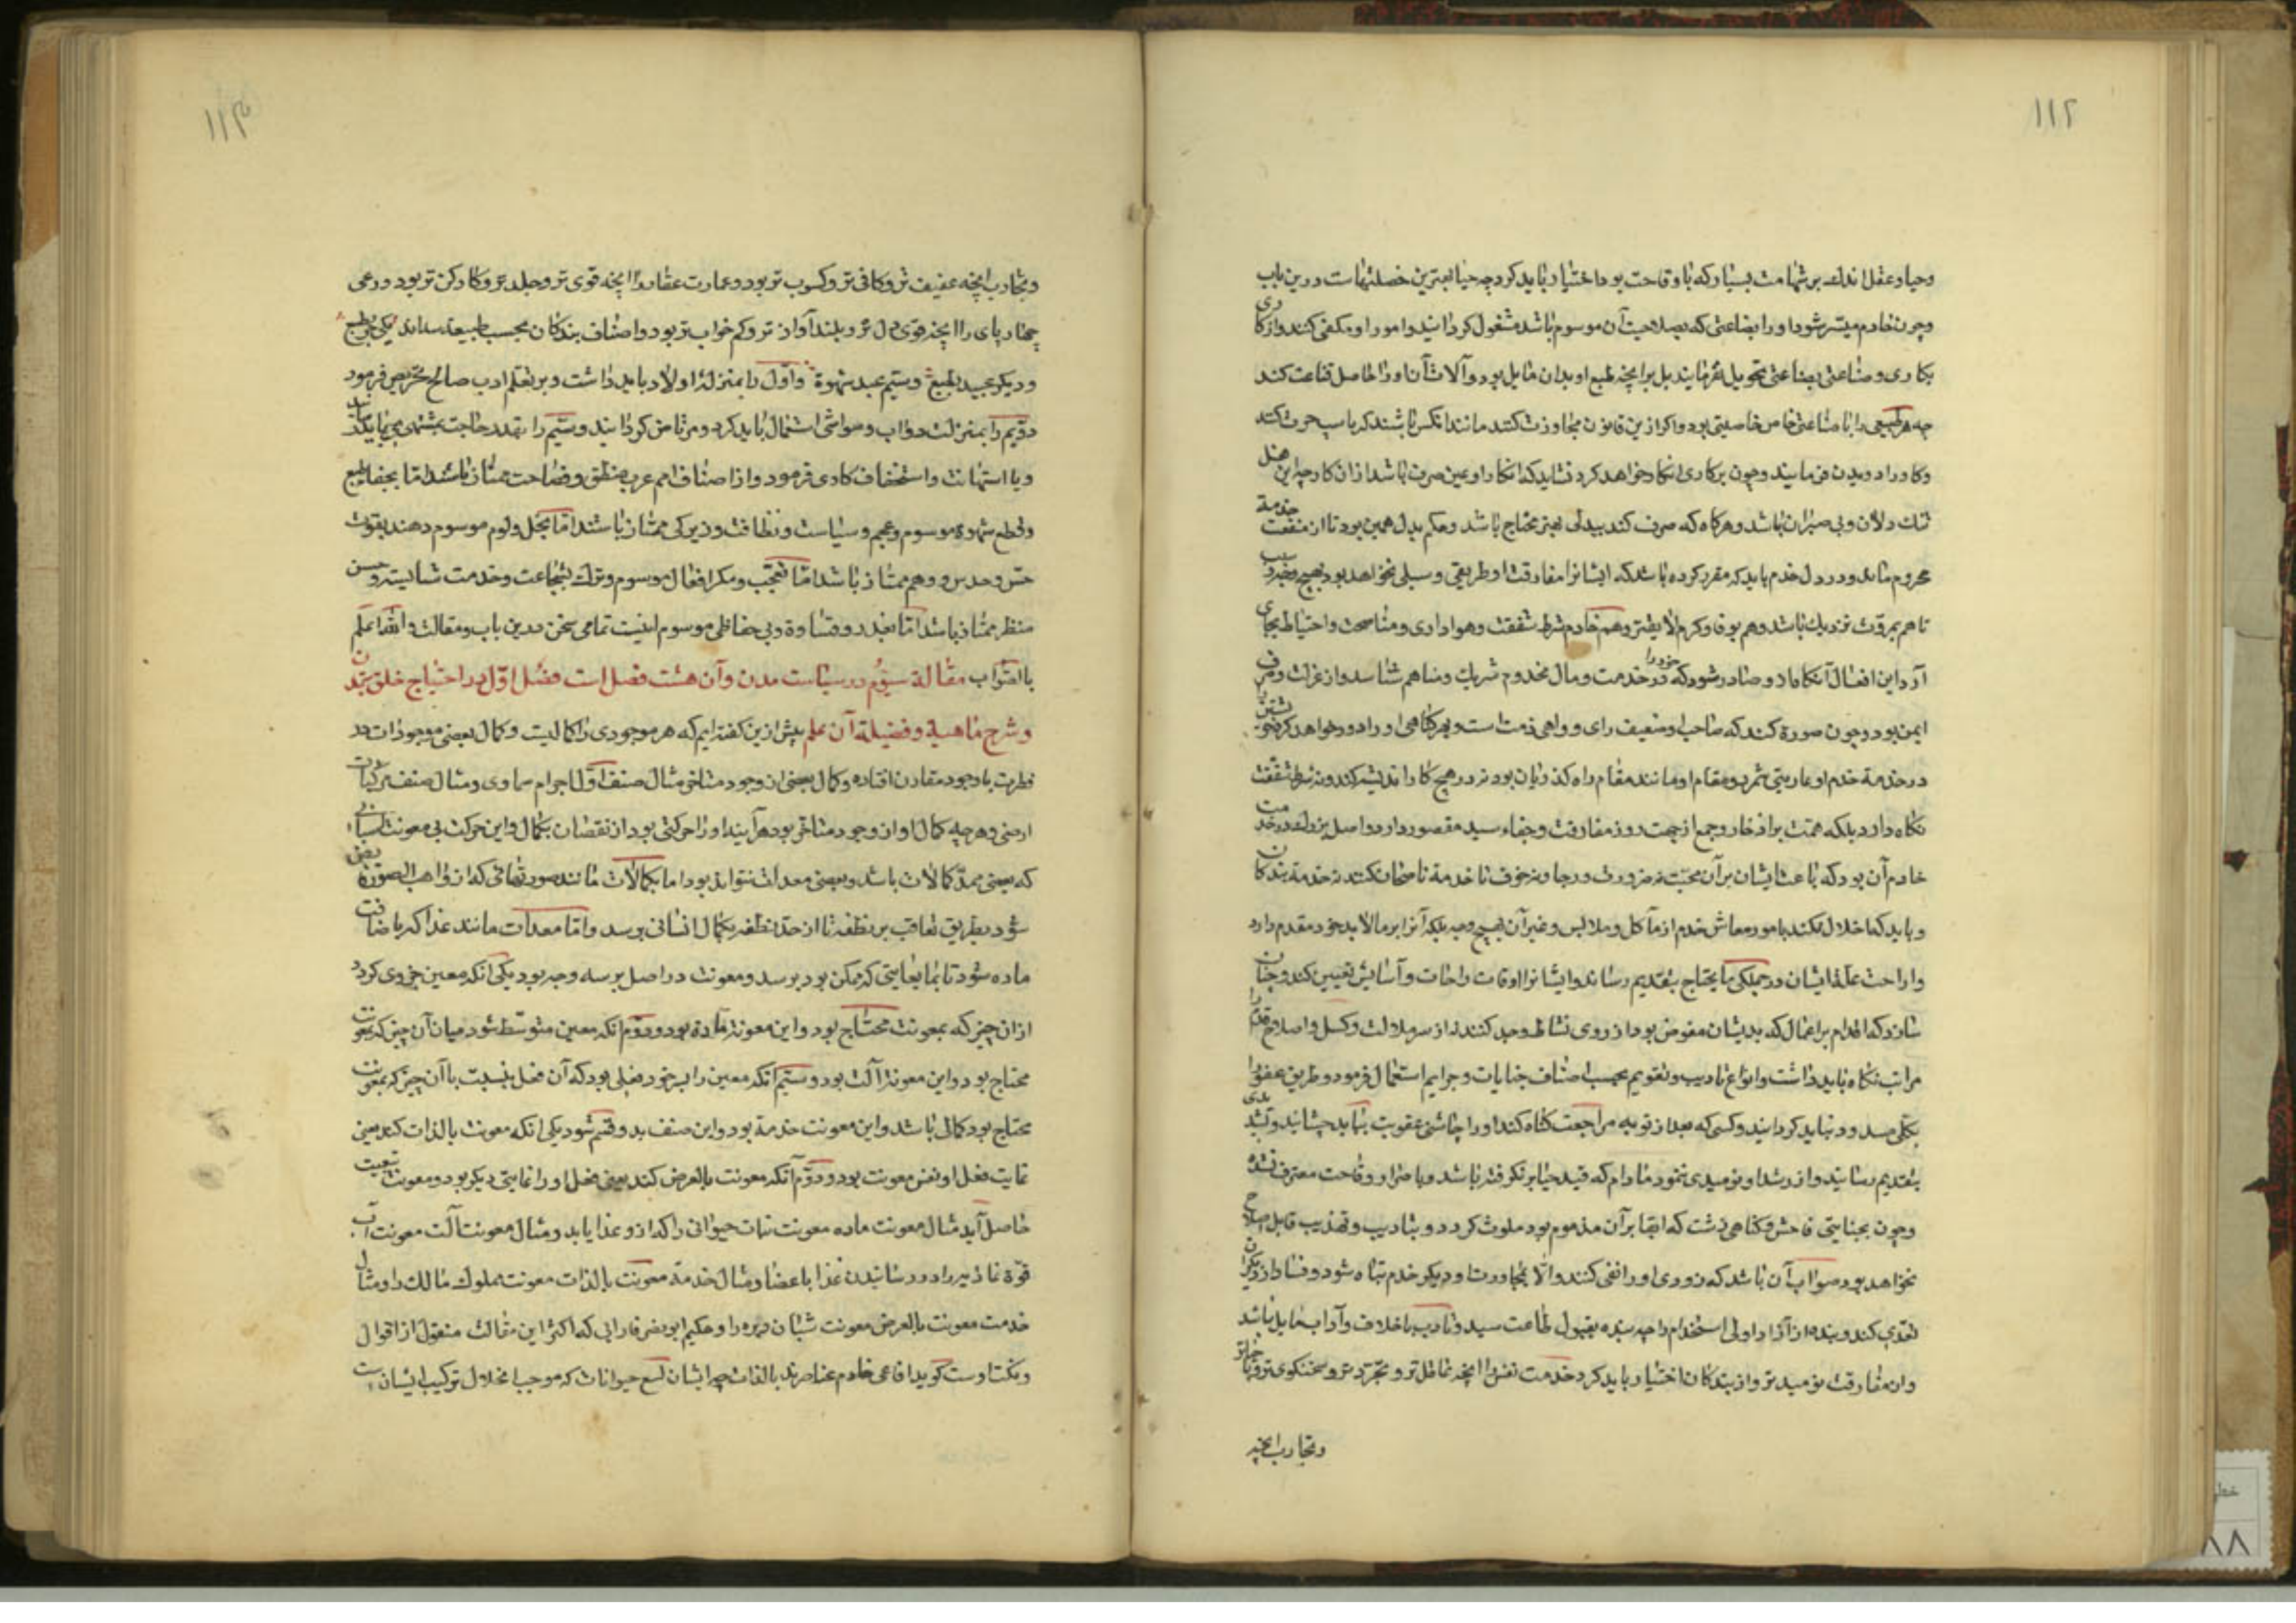 ۱۱۲
وحیا و عقل اندک بر شهامت بسیار که با وقاحت بود اختیار باید کرد چه حیا بهترین خصلتهاست درین باب
وچون خادم میسر شود او را بصناعتی که بصلاحیت آن موسوم باشد مشغول گردانید و امور او مکفی کنند و از کاری
بکاری و صناعتی بصناعتی تحویل نفرمایند بل برانچه طبع او بدان مایل بود و آلات آن او را حاصل قناعت کند
چه هر طبیعی را با صناعتی خاص خاصیتی بود و اگر ازین قانون مجاوزت کنند مانند انکس باشند که باسب حرث کند
وکاو را دویدن فرمایند وچون بر کاری انکار خواهد کرد نشاید که انکار او عین صرف باشد ازان کار چه این فعل
تنک دلان و بی صبران باشد و هرکاه که صرف کند ببدلی بهتر محتاج باشد و حکم بدل همین بود تا از منفعت خدمة
محروم ماند ودر دل خدم باید که مقرر کرده باشد که ایشانرا مفارقت او طریقی و سبیلی نخواهد بود بهیچ وجه و سبب
تا هم بمروت نزدیک باشد وهم بوفا وکرم لایقتر وهم خادم شرط شفقت و هواداری و مناصحت واحتیاط بجای
آرد این افعال آنکاه ازو صادر شود که خود را در خدمت و مال مخدوم شریک و مساهم شناسد و از عزلت و صرف
ایمن بود و چون صورة کند که صاحب او ضعیف رای و واهی ذمت است و بهر کناهی او را دور خواهد کرد خویشتن را
در خدمة خدم او عاریتی شمرد و مقام او مانند مقام راه کذریان بود نه در هیچ کار اندیشه کند و نه شرط شفقت
نکاه دارد بلکه همت بر ادخار و جمع از جهت روز مفارقت و جفاء سید مقصور دارد و اصل بزرک در خدمت
خادم آن بود که باعث ایشان بر آن محبت نه ضرورت و رجا و نه خوف تا خدمة ناصحان کنند نه خدمة بندکان
و باید که اخلال نکند بامور معاش خدم از مآکل و ملابس و غیر آن بهیچ وجه بلکه آنرا بر مالابد خود مقدم دارد
و ازاحت علة ایشان در جملکی ما یحتاج بتقدیم رساند و ایشانرا اوقات راحات و آسایش تعیین کند و چنان
سازد که اقدام بر اعمال که بدیشان مفوض بود از روی نشاط و جد کنند نه از سر ملالت و کسل و اصلاح خدم را
مراتب نکاه باید داشت و انواع تادیب و تقویم بحسب اصناف جنایات و جرایم استعمال فرمود و طریق عفو را
بکلی مسدود نباید کردانید و کسی که بعد از توبه مراجعت کناه کند او را چاشنی عقوبت بباید چشانید و تشدیدی
بتقدیم رسانید و از رشد او نومیدی ننمود مادام که قید حیا برنکرفته باشد و باصرار و وقاحت معترف نشده
وچون بجنایتی فاحش و کناهی زشت که ابقا بر آن مذموم بود ملوث کردد و بتادیب و تهذیب قابل اصلاح
نخواهد بود صواب آن باشد که بزودی او را نفی کنند والا بمجاورت او دیکر خدم تباه شود و فساد ازو بدیکران
تعدی کند و بنده از آزاد اولی استخدام را چه بنده بقبول طاعت سید و تادب باخلاق و آداب مایل باشد
و از مفارقت نومید تر و از بندکان اختیار باید کرد خدمت نفس را انچه عاقل تر و مجرد تر و سخنکوی تر و باحیا تر
وتجارب انچه
۱۱۳
وتجارب انچه عفیف تر وکافی تر وکسوب تر بود و عمارت عقار را انچه قوی تر و جلد تر و کارکن تر بود و رعی
چهارپای را انچه قوی دل تر و بلند آواز تر و کم خواب تر بود و اصناف بندکان بحسب طبیعت سه اند یکی حر بطبع
و دیکر عبید بطبع و سیم عبد شهوة و اول را بمنزله اولاد باید داشت و بر تعلم ادب صالح تحریص فرمود
دویم را بمنزلت دواب و مواشی استعمال باید کرد و مرتاض کردانید و سیم را بقدر حاجت بمشتهی می باید رسانید
و با استهانت و استخفاف کاری فرمود و از اصناف امم عرب بمنطق و فصاحت ممتاز باشند اما بجفاء طبع
و قطع شهوة موسوم و عجم بسیاست و نظافت و زیرکی ممتاز باشند اما بخل و لوم موسوم و هند بقوت
حس و حدس و وهم ممتاز باشد اما بعجب و مکر و افعال موسوم و ترک بشجاعت و خدمت شایسته و حسن
منظر ممتاز باشد اما بغدر و قساوة و بی حفاظی موسوم اینست تمامی سخن درین باب و مقالت والله اعلم
بالصواب مقالة سیوم در سیاست مدن و آن هشت فصل است فصل اول در احتیاج خلق بتمدن
و شرح ماهیة و فضیلة آن علم پیش ازین کفته ایم که هر موجودی را کمالیست و کمال بعضی موجودات در
فطرت با وجود مقارن افتاده و کمال بعضی از وجود متاخر مثال صنف اول اجرام سماوی و مثال صنف دوم مرکبات
ارضی و هرچه کمال او از وجود متاخر بود هرآینه او را حرکتی بود از نقصان بکمال و این حرکت بی معونت اسبابی
که بعضی ممد کمالات باشد و بعضی معدات نتواند بود اما کمالات مانند صورتهائی که از واهب الصورة فایض
شود بطریق تعاقب بر نطفه تا از حد نطفه بکمال انسانی برسد و اما معدات مانند غذا که باضافت
ماده شود تا نما بغایتی که ممکن بود برسد و معونت در اصل بر سه وجه بود یکی انکه معین جزوی کردد
ازان چیز که بمعونت محتاج بود و این معونت ماده بود و دویم انکه معین متوسط شود میان آن چیز که بمعونت
محتاج بود و این معونة آلت بود و سیم انکه معین را بسر خود فعلی بود که آن فعل بنسبت با آن چیز که بمعونت
محتاج بود کمالی باشد و این معونت خدمة بود و این صنف بدو قسم شود یکی انکه معونت بالذات کند یعنی
غایت فعل او نفس معونت بود و دوم آنکه معونت بالعرض کند یعنی فعل او را غایتی دیکر بود و معونت بتبعیت
حاصل آید مثال معونت ماده معونت نبات حیوانی را که ازو غذا یابد و مثال معونت آلت معونت آب
قوة غاذیه را در رسانیدن غذا باعضا و مثال خدمة معونت بالذات معونت مملوک مالک را و مثال
خدمت معونت بالعرض معونت شبان رمه را و حکیم ابونصر فارابی که اکثر این مقالت منقول از اقوال
و نکت اوست کوید افاعی خادم عناصرند بالذات چه ایشان لسع حیوانات که موجب انحلال ترکیب ایشان است